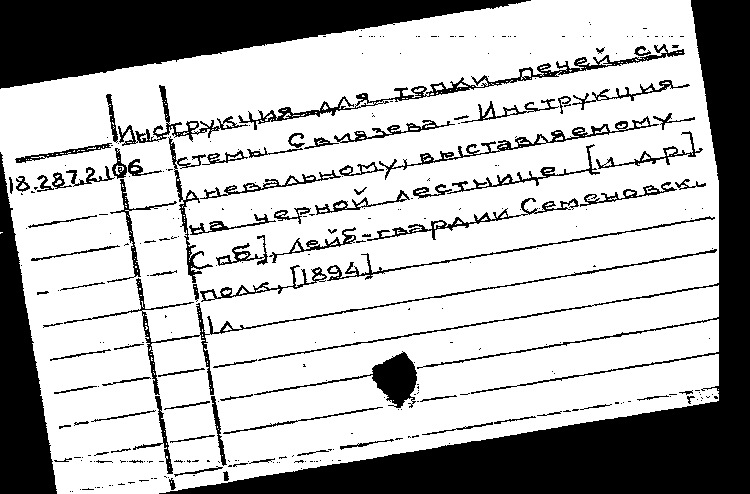 Инструкция для топки печей си-
стемы Свиязева. - Инструкция
18.287.2.106
дневальному, выставляемому
на черной лестнице. [и др.].
[Спб.], Лейб-гвардии Семеновск.
полк, [1894].
1 л.